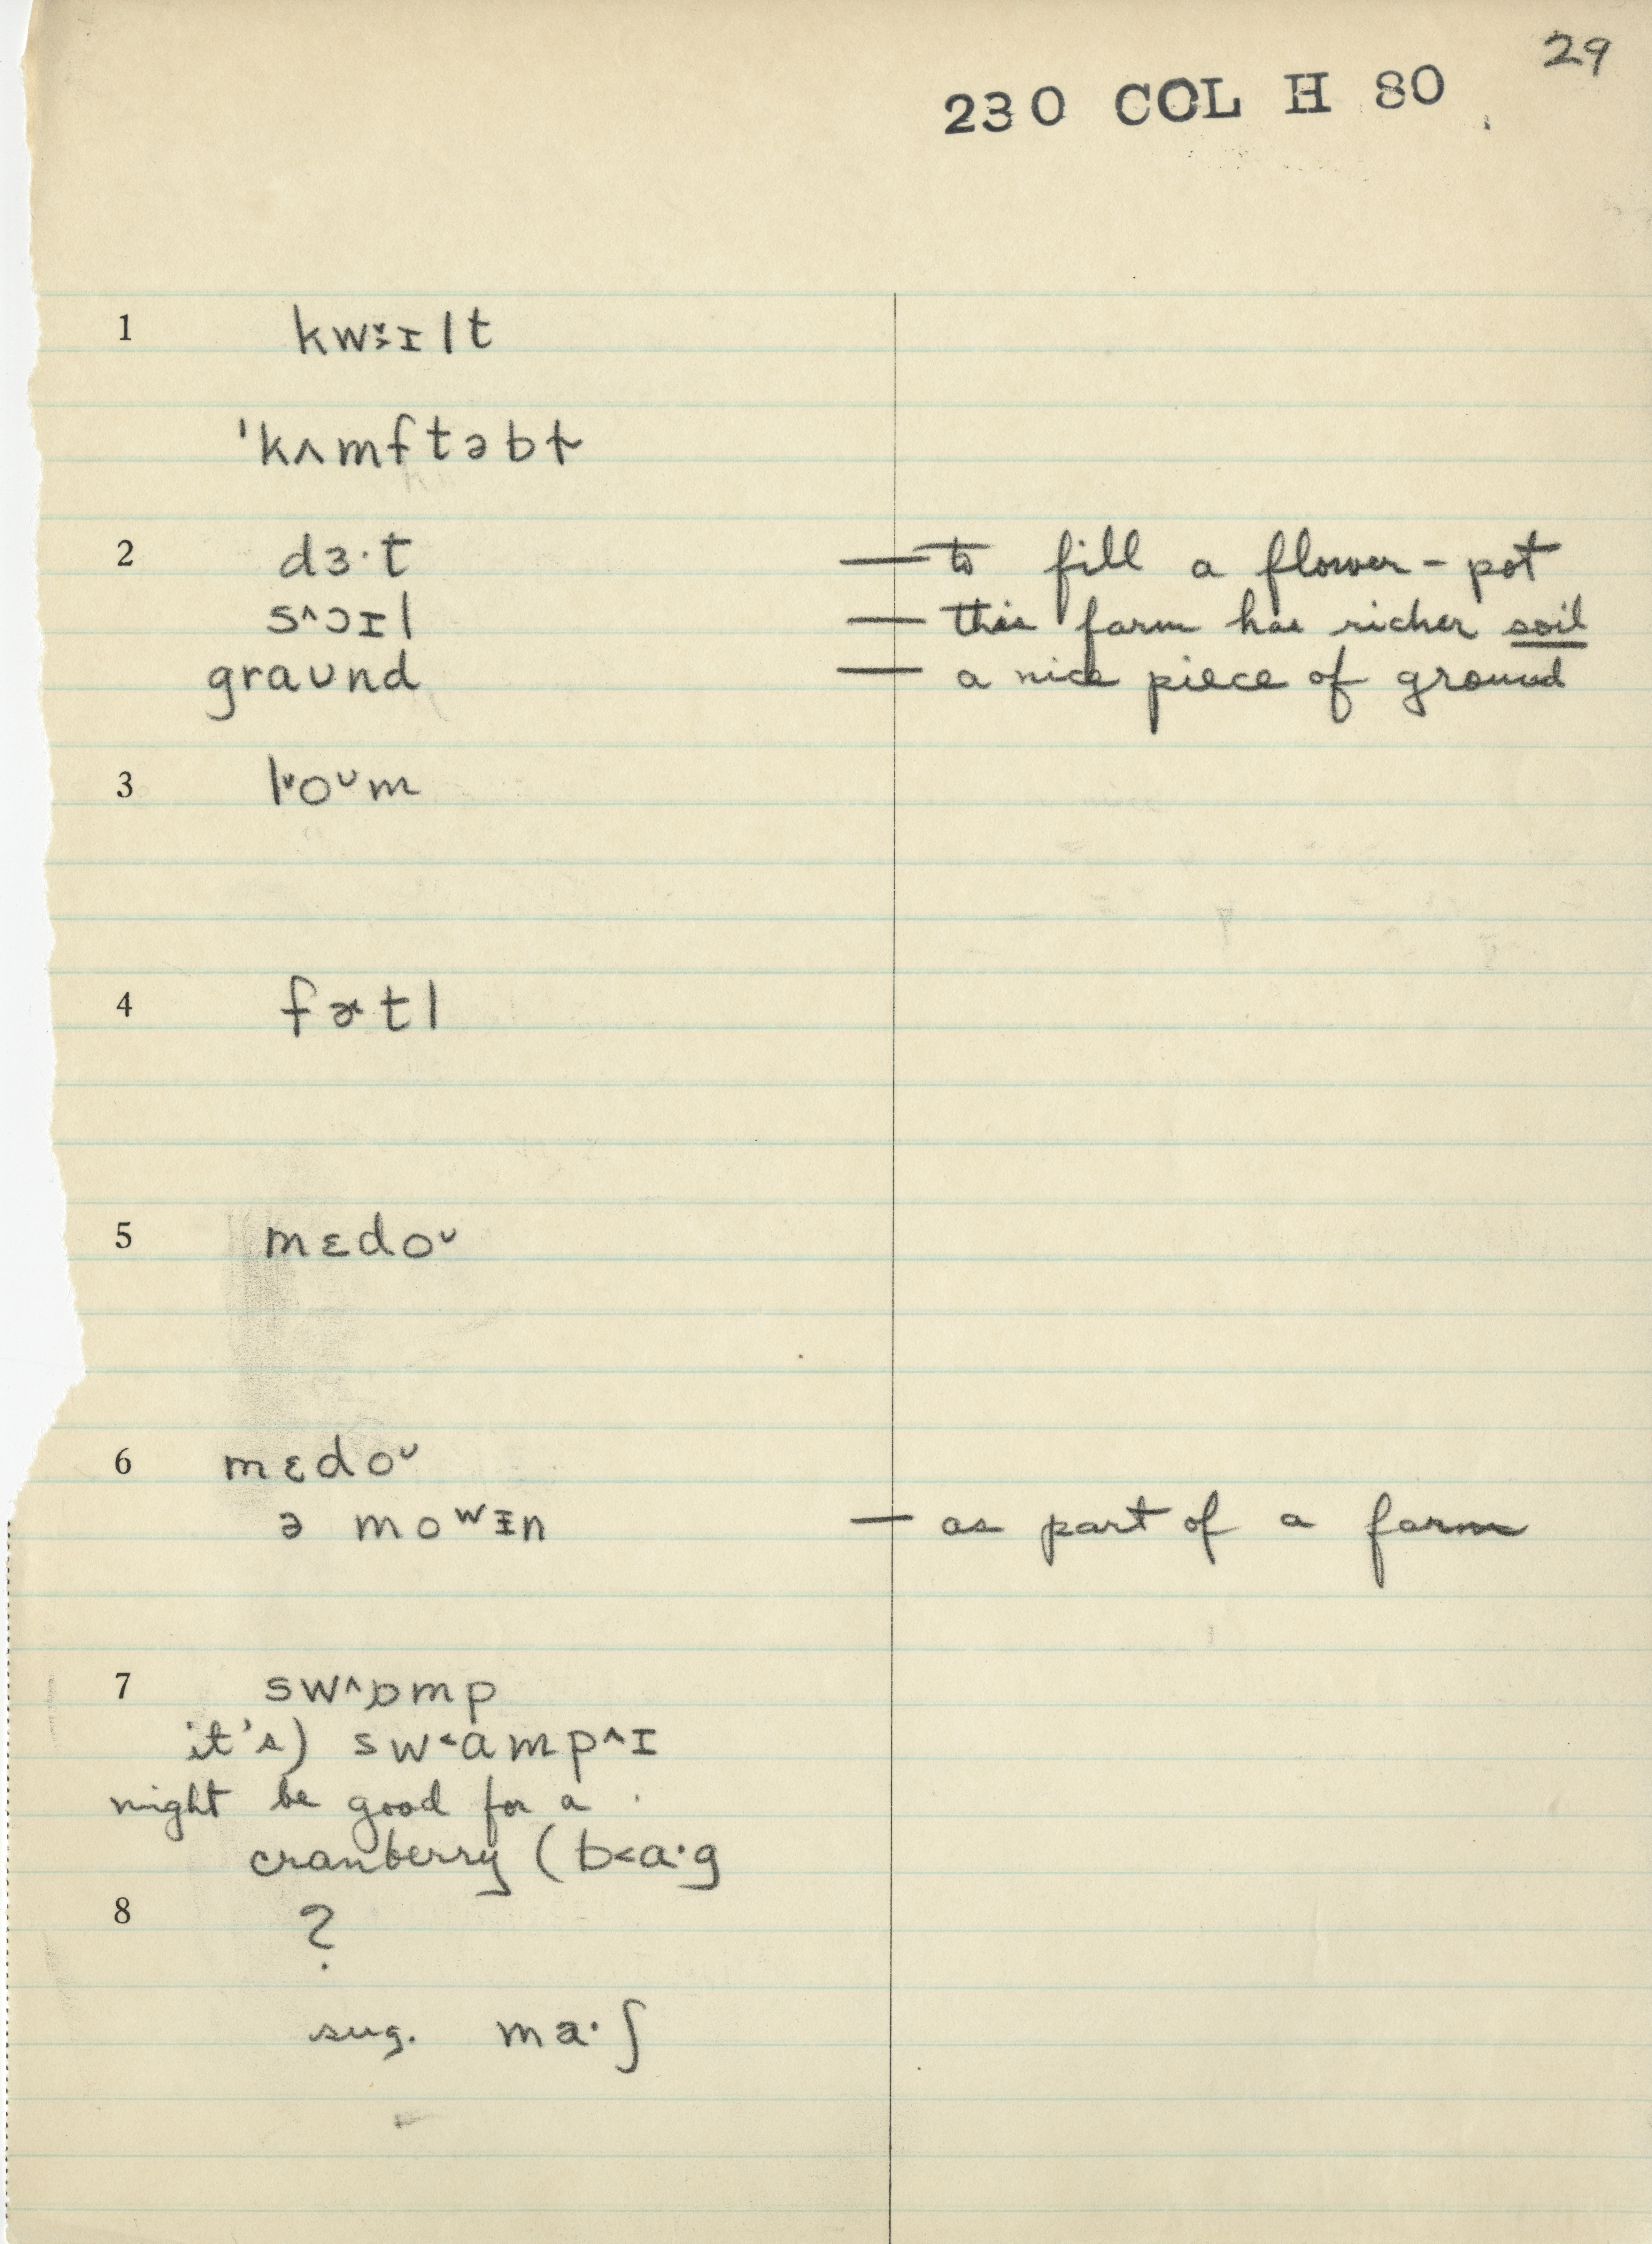 29
230 COL H 80
1 kw˅˃ɪlt
ˈkʌmftəbɫ
2 dɜ·t — to fill a flower-pot
s^ɔɪl — this farm has richer soil
graʊnd — a nice piece of ground
3 l˅oᴜm
4 fɚtl
5 mɛdoᴜ
6 mɛdoᴜ
ə moʷɪ̵n — as part of a farm
7 sw^ɒmp
it's) sw˂ɑmp^ɪ
might be good for a
cranberry (b˂ɑ·g
8 ?
sug. ma·ʃ